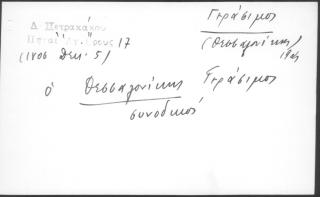 Δ Πετρακάκου
17
(1806 Δεκ. 5)
Γεράσιμος
(Θεσσαλονίκης)
ὁ Θεσσαλονίκης Γεράσιμος
συνοδικός